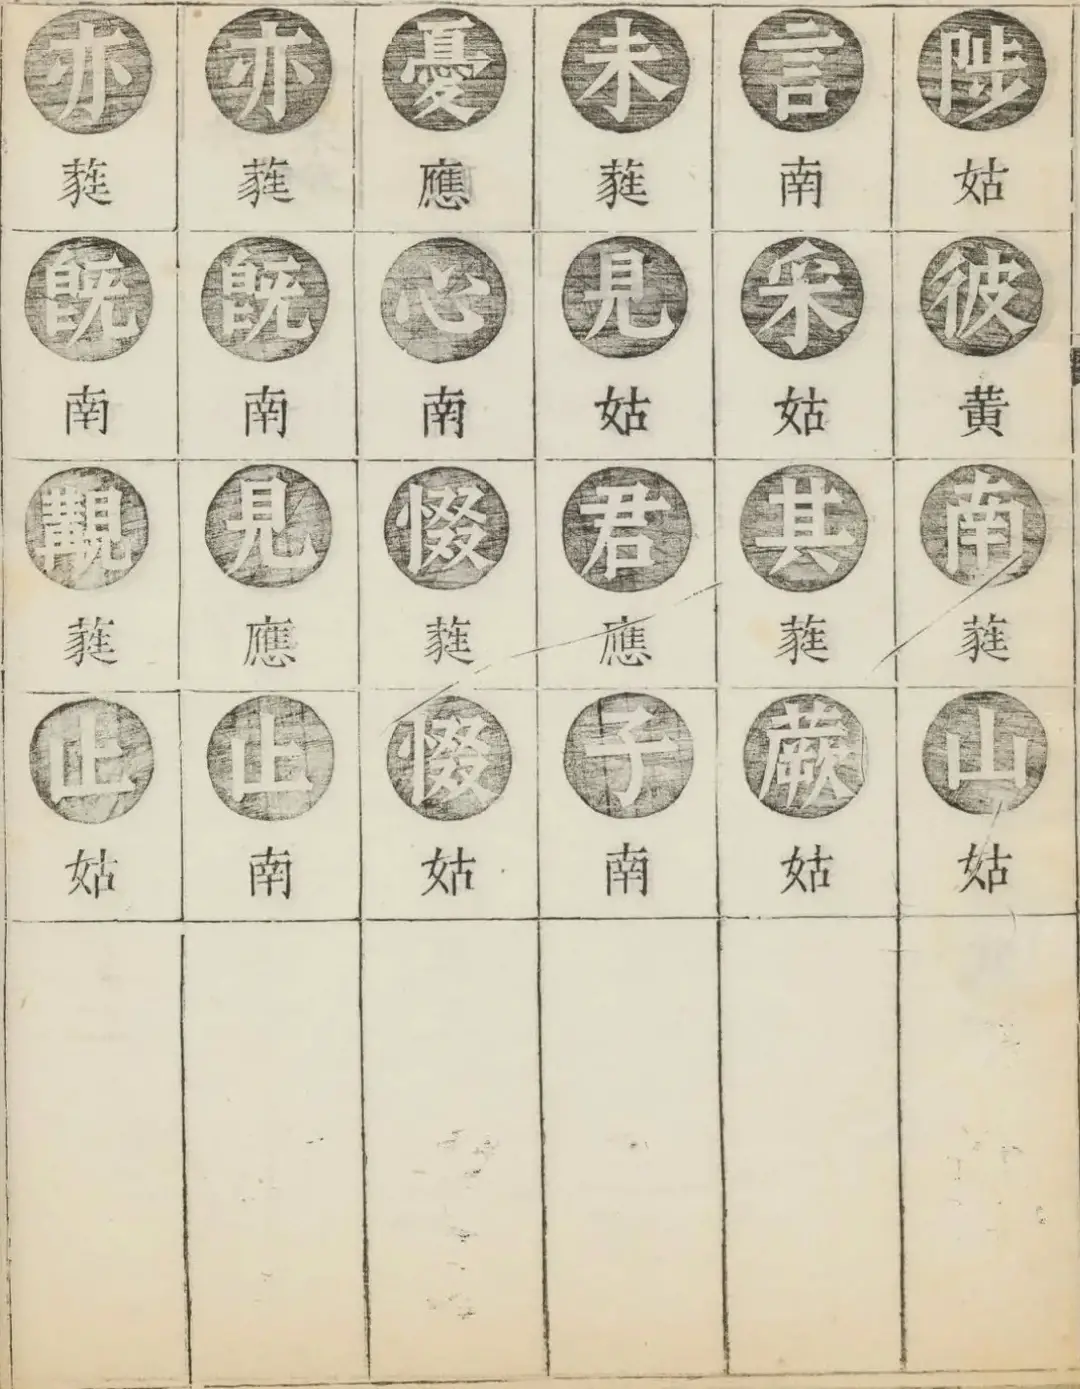 陟姑彼黄南蕤山姑
言南采姑其蕤蕨姑
未蕤見姑君應子南
憂應心南惙蕤惙姑
亦蕤既南見應止南
亦蕤既南覯蕤止姑